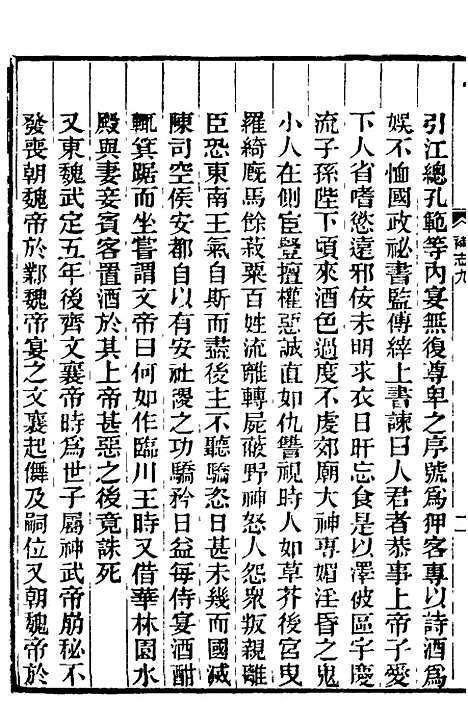 引江總孔範等内宴無復尊卑之序號爲狎客專以詩酒爲
娱不恤國政祕書監傅縡上書諫曰人君者恭事上帝子愛
下人省嗜慾遠邪佞未明求衣日旰忘食是以澤被區宇慶
流子孫陛下頃來酒色過度不虔郊廟大神專媚淫昏之鬼
小人在側宦豎擅權惡誠直如仇讐視時人如草芥後宫曳
羅綺廐馬餘菽粟百姓流離轉屍蔽野神怒人怨衆叛親離
臣恐東南王氣自斯而盡後主不聽驕恣日甚未幾而國滅
陳司空侯安都自以有安社稷之功驕矜日益每侍宴酒酣
輒箕踞而坐嘗謂文帝曰何如作臨川王時又借華林園水
殿與妻妾賓客置酒於其上帝甚惡之後竟誅死
又東魏武定五年後齊文襄帝時爲世子屬神武帝崩秘不
發喪朝魏帝於鄴魏帝宴之文襄起儛及嗣位又朝魏帝於